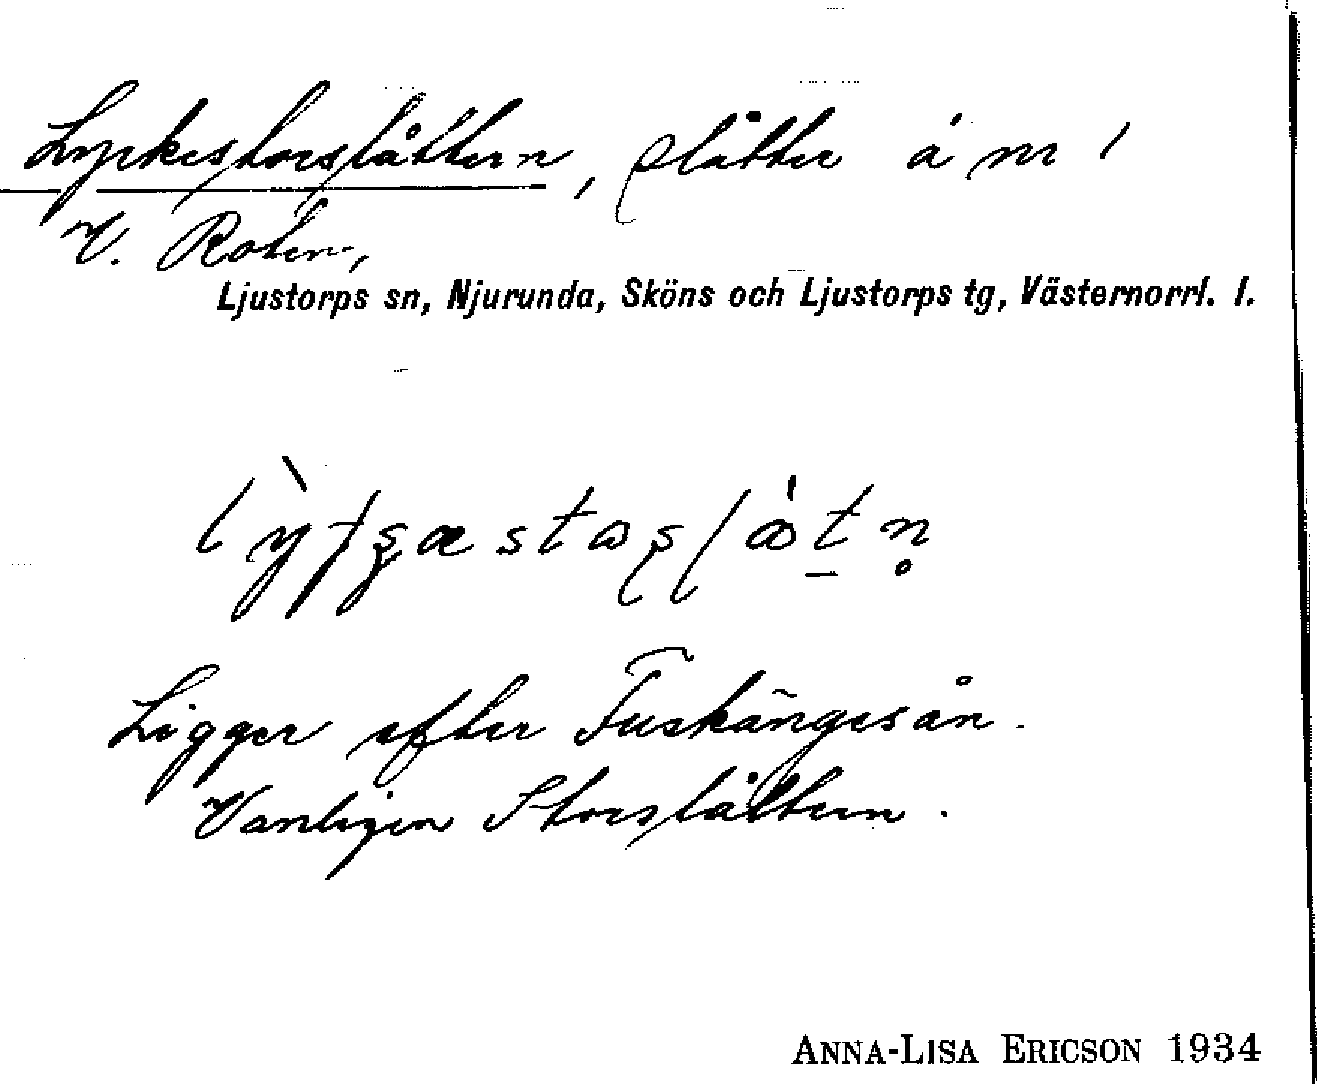 Lyckestorslåttern, slåtter å nr 1
V. Roten,
Ljustorps sn, Njurunda, Sköns och Ljustorps tg, Västernorrl. l.
Ligger efter Tuskängesån.
Vanligen Storslåttern.
ANNA-LISA ERICSON 1934